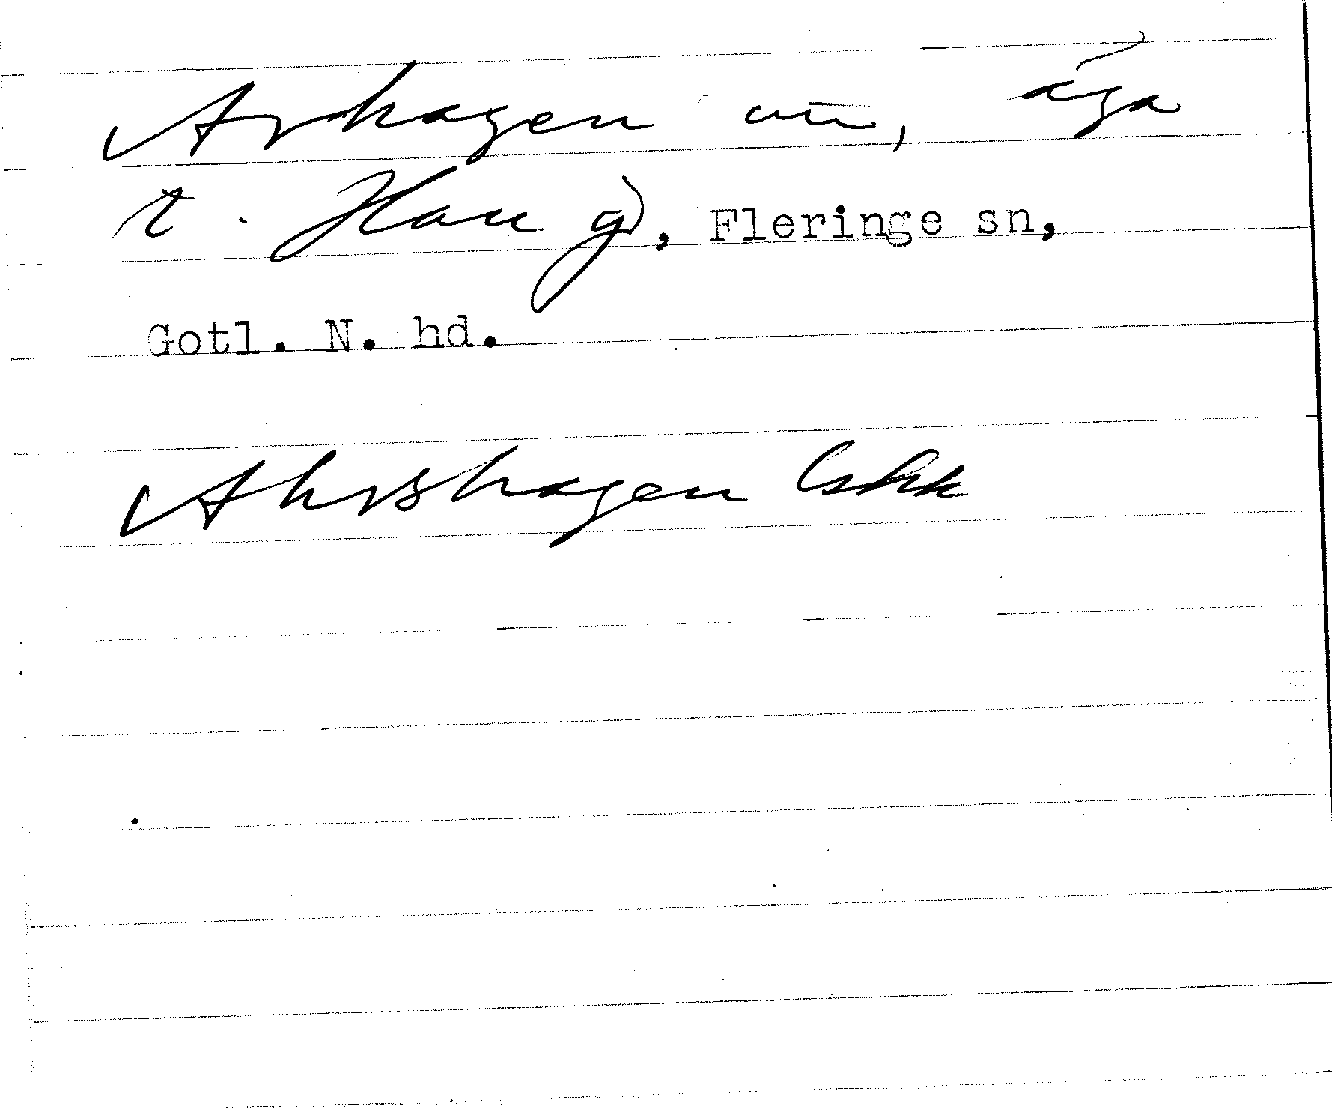 Arhagen ... äga
t. Hau gd, Fleringe sn,
Gotl. N. hd.
Ahrshagen Cskk